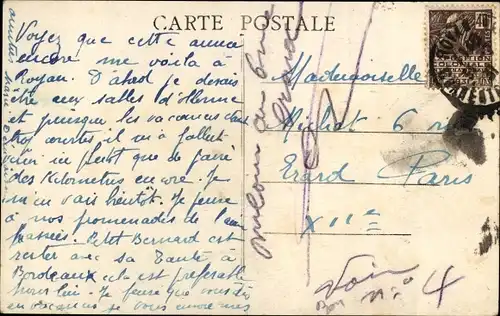 CARTE POSTALE
Voyez que cette année
encore me voilà à
Royan. D'abord je devais
être aux salles d'Olonne
et puisque les vacances étant
trop courtes il m'a fallut
venir ici peut que de faire
des Kilometres encore. Je
m'en vais bientôt. Je pense
à nos promenades de l'an
passées. Petit Bernard est
rester avec sa Tante à
Bordeaux cela est préférable
pour lui. Je pense que vous
en vacances je vous
amitiés Marie
Mademoiselle
Michot 6 rue
Erard Paris
XIIe
au 6 rue
Erard
Voir
Bon N° 4